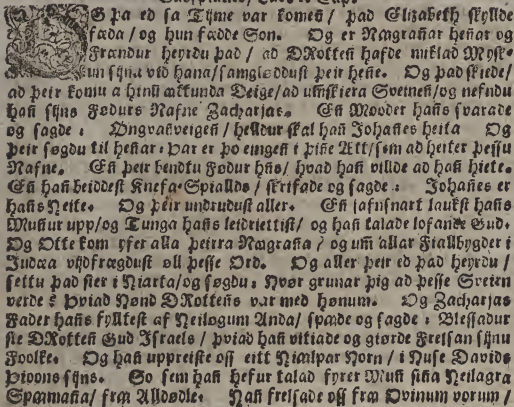 OG þa ed sa Tijme var komeñ / þad Elizabeth skyllde
fæda / og hun fædde Son. Og er Nꜳgrañar heñar og
Frændur heyrdu þad / ad DRotteñ hafde miklad Mysk-
un sijna vid hana / samglöddust þeir heñe. Og þad skiede /
ad þeir komu a hinū ꜳttunda Deige / ad umskiera Sveineñ / og nefndu
hañ sijns Födurs Nafne Zacharias. Eñ Mooder hañs svarade
og sagde: Öngvañveigeñ / helldur skal hañ Johañes heita Og
þeir sögdu til heñar: Þar er þo eingeñ i þiñe Ætt / sem ad heiter þessu
Nafne. Eñ þeir bendtu Födur hñs / hvad hañ villde ad hañ hiete.
Eñ hañ beiddest Knefa-Spiallds / skrifade og sagde: Johañes er
hañs Heite. Og þeir undrudust aller. Eñ jafnsnart laukst hañs
Muñur upp / og Tunga hañs leidriettist / og hañ talade lofande Gud.
Og Otte kom yfer alla þeirra Nꜳgraña / og um̃ allar Fiallbygder i
Judæa vijdfrægdust øll þesse Ord. Og aller þeir ed þad heyrdu /
settu þad sier i Hiarta / og søgdu: Hvør grunar þig ad þesse Sveirn
verde? Þviad Hønd DRotteñs var med hønum. Og Zacharias
Fader hañs fylltest af Heilogum Anda / spꜳde og sagde: Blessadur
sie DRotteñ Gud Israels / þviad hañ vitiade og giørde Frelsan sijnu
Foolke. Og hañ uppreiste oss eitt Hialpar Horn / i Huse Davids
þioons sijns. So sem hañ hefur talad fyrer Muñ siña Heilagra
Spꜳmaña / frꜳ Alldødle. Hañ frelsade oss frꜳ Ovinum vorum /